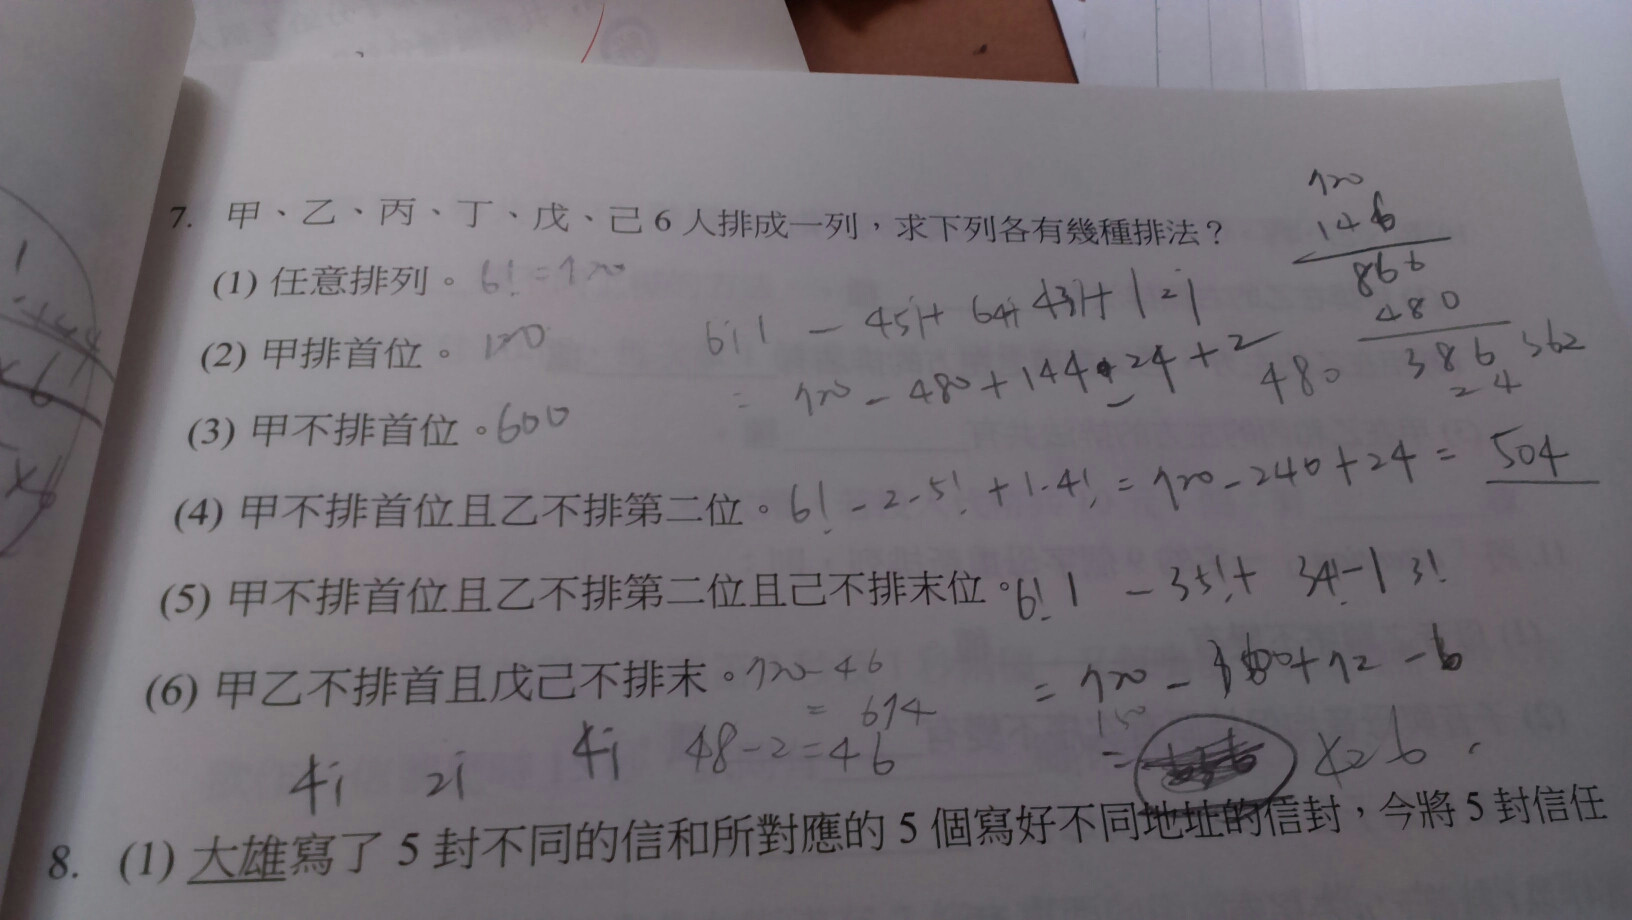 720
146
866
480
386 362
24
7. 甲、乙、丙、丁、戊、己 6 人排成一列，求下列各有幾種排法？
(1) 任意排列。6! = 720
(2) 甲排首位。120
6! 1 - 4 5! + 6 4! 4 3! + 1 2!
= 720 - 480 + 144 - 24 + 2
480
(3) 甲不排首位。600
(4) 甲不排首位且乙不排第二位。6! - 2·5! + 1·4! = 720 - 240 + 24 = 504
(5) 甲不排首位且乙不排第二位且己不排末位。6! 1 - 3 5! + 3 4! - 1 3!
= 720 - 360 + 72 - 6
= 426
(6) 甲乙不排首且戊己不排末。720 - 46
= 674
4! 2! 4! 48 - 2 = 46
8. (1) 大雄寫了 5 封不同的信和所對應的 5 個寫好不同地址的信封，今將 5 封信任